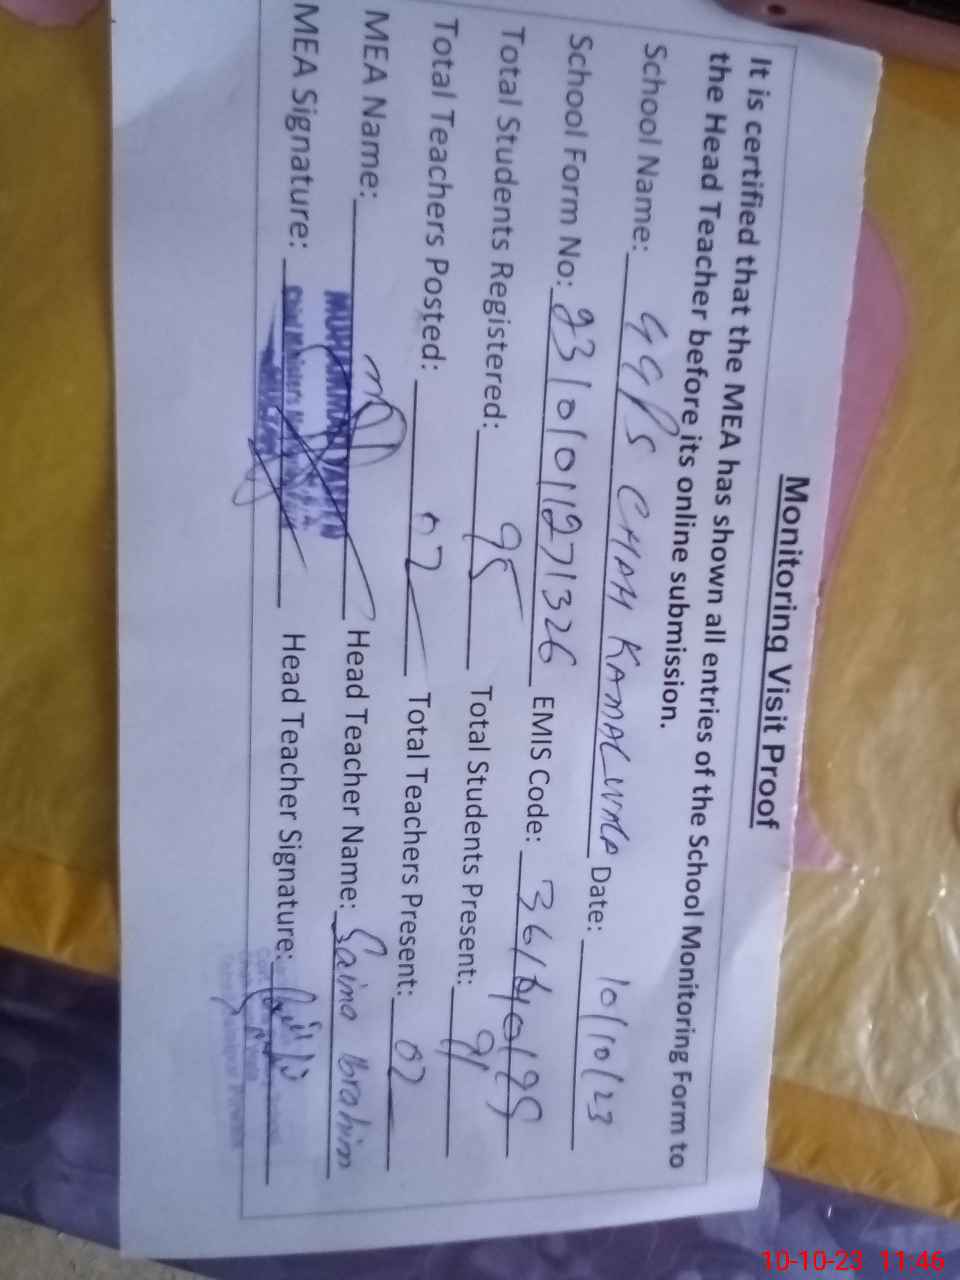 Monitoring Visit Proof
It is certified that the MEA has shown all entries of the School Monitoring Form to
the Head Teacher before its online submission.
School Name: GGPS CHAH KAMAL WALA Date: 10/10/23
School Form No: 2310101271326 EMIS Code:
Total Students Registered: 95 Total Students Present: 91
Total Teachers Posted: 02 Total Teachers Present: 02
MEA Name: MUHAMMAD Head Teacher Name: Saima Ibrahim
MEA Signature: Head Teacher Signature:
10-10-23 11:46